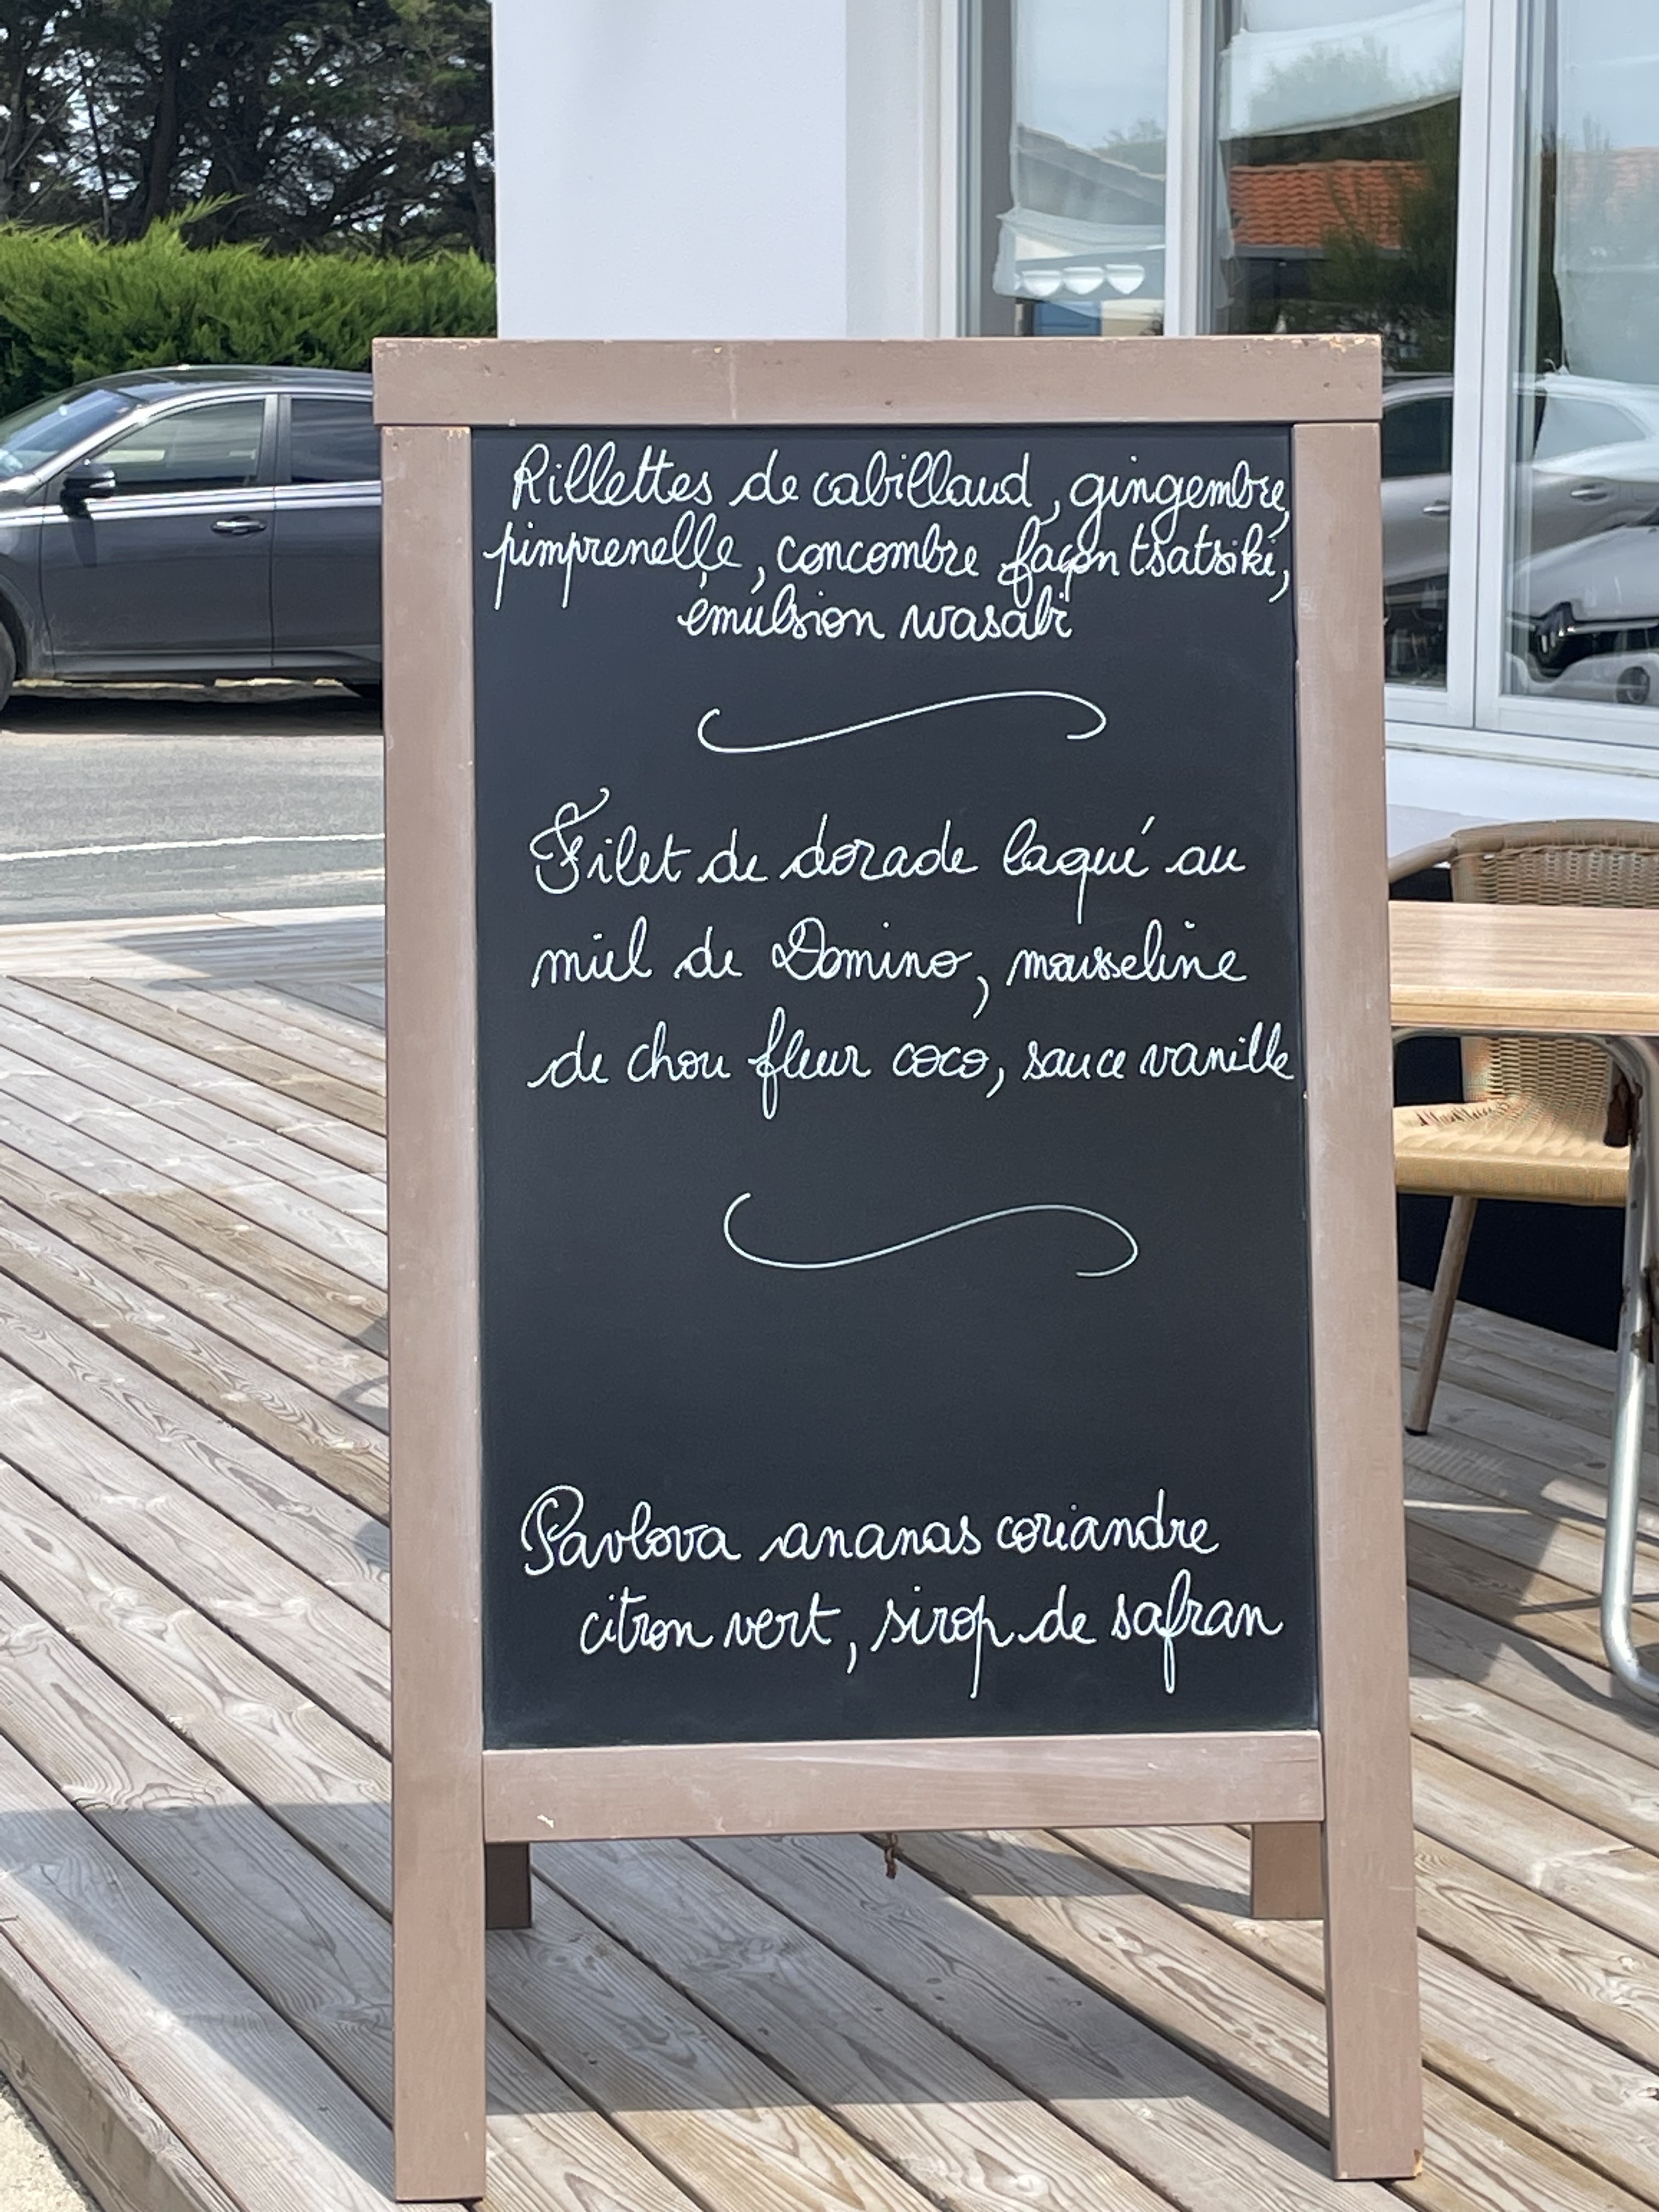 Rillettes de cabillaud, gingembre,
pimprenelle, concombre façon tsatsiki,
émulsion wasabi
Filet de dorade laqué au
miel de Domino, mousseline
de chou fleur coco, sauce vanille
Pavlova ananas coriandre
citron vert, sirop de safran